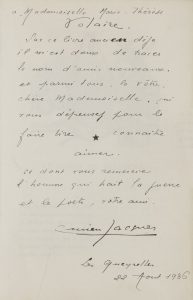 a Mademoiselle Marie-Thérèse
Volaire.
Sur ce livre ancien déjà
il m'est doux de tracer
le nom d'amis nouveaux,
et parmi tous, le vôtre,
chère Mademoiselle, qui
vous dépensez pour le
faire lire connaître
aimer.
ce dont vous remercie
l'homme qui hait la guerre
et le poète, votre ami.
Lucien Jacques
Les Queyrelles
22 Août 1936